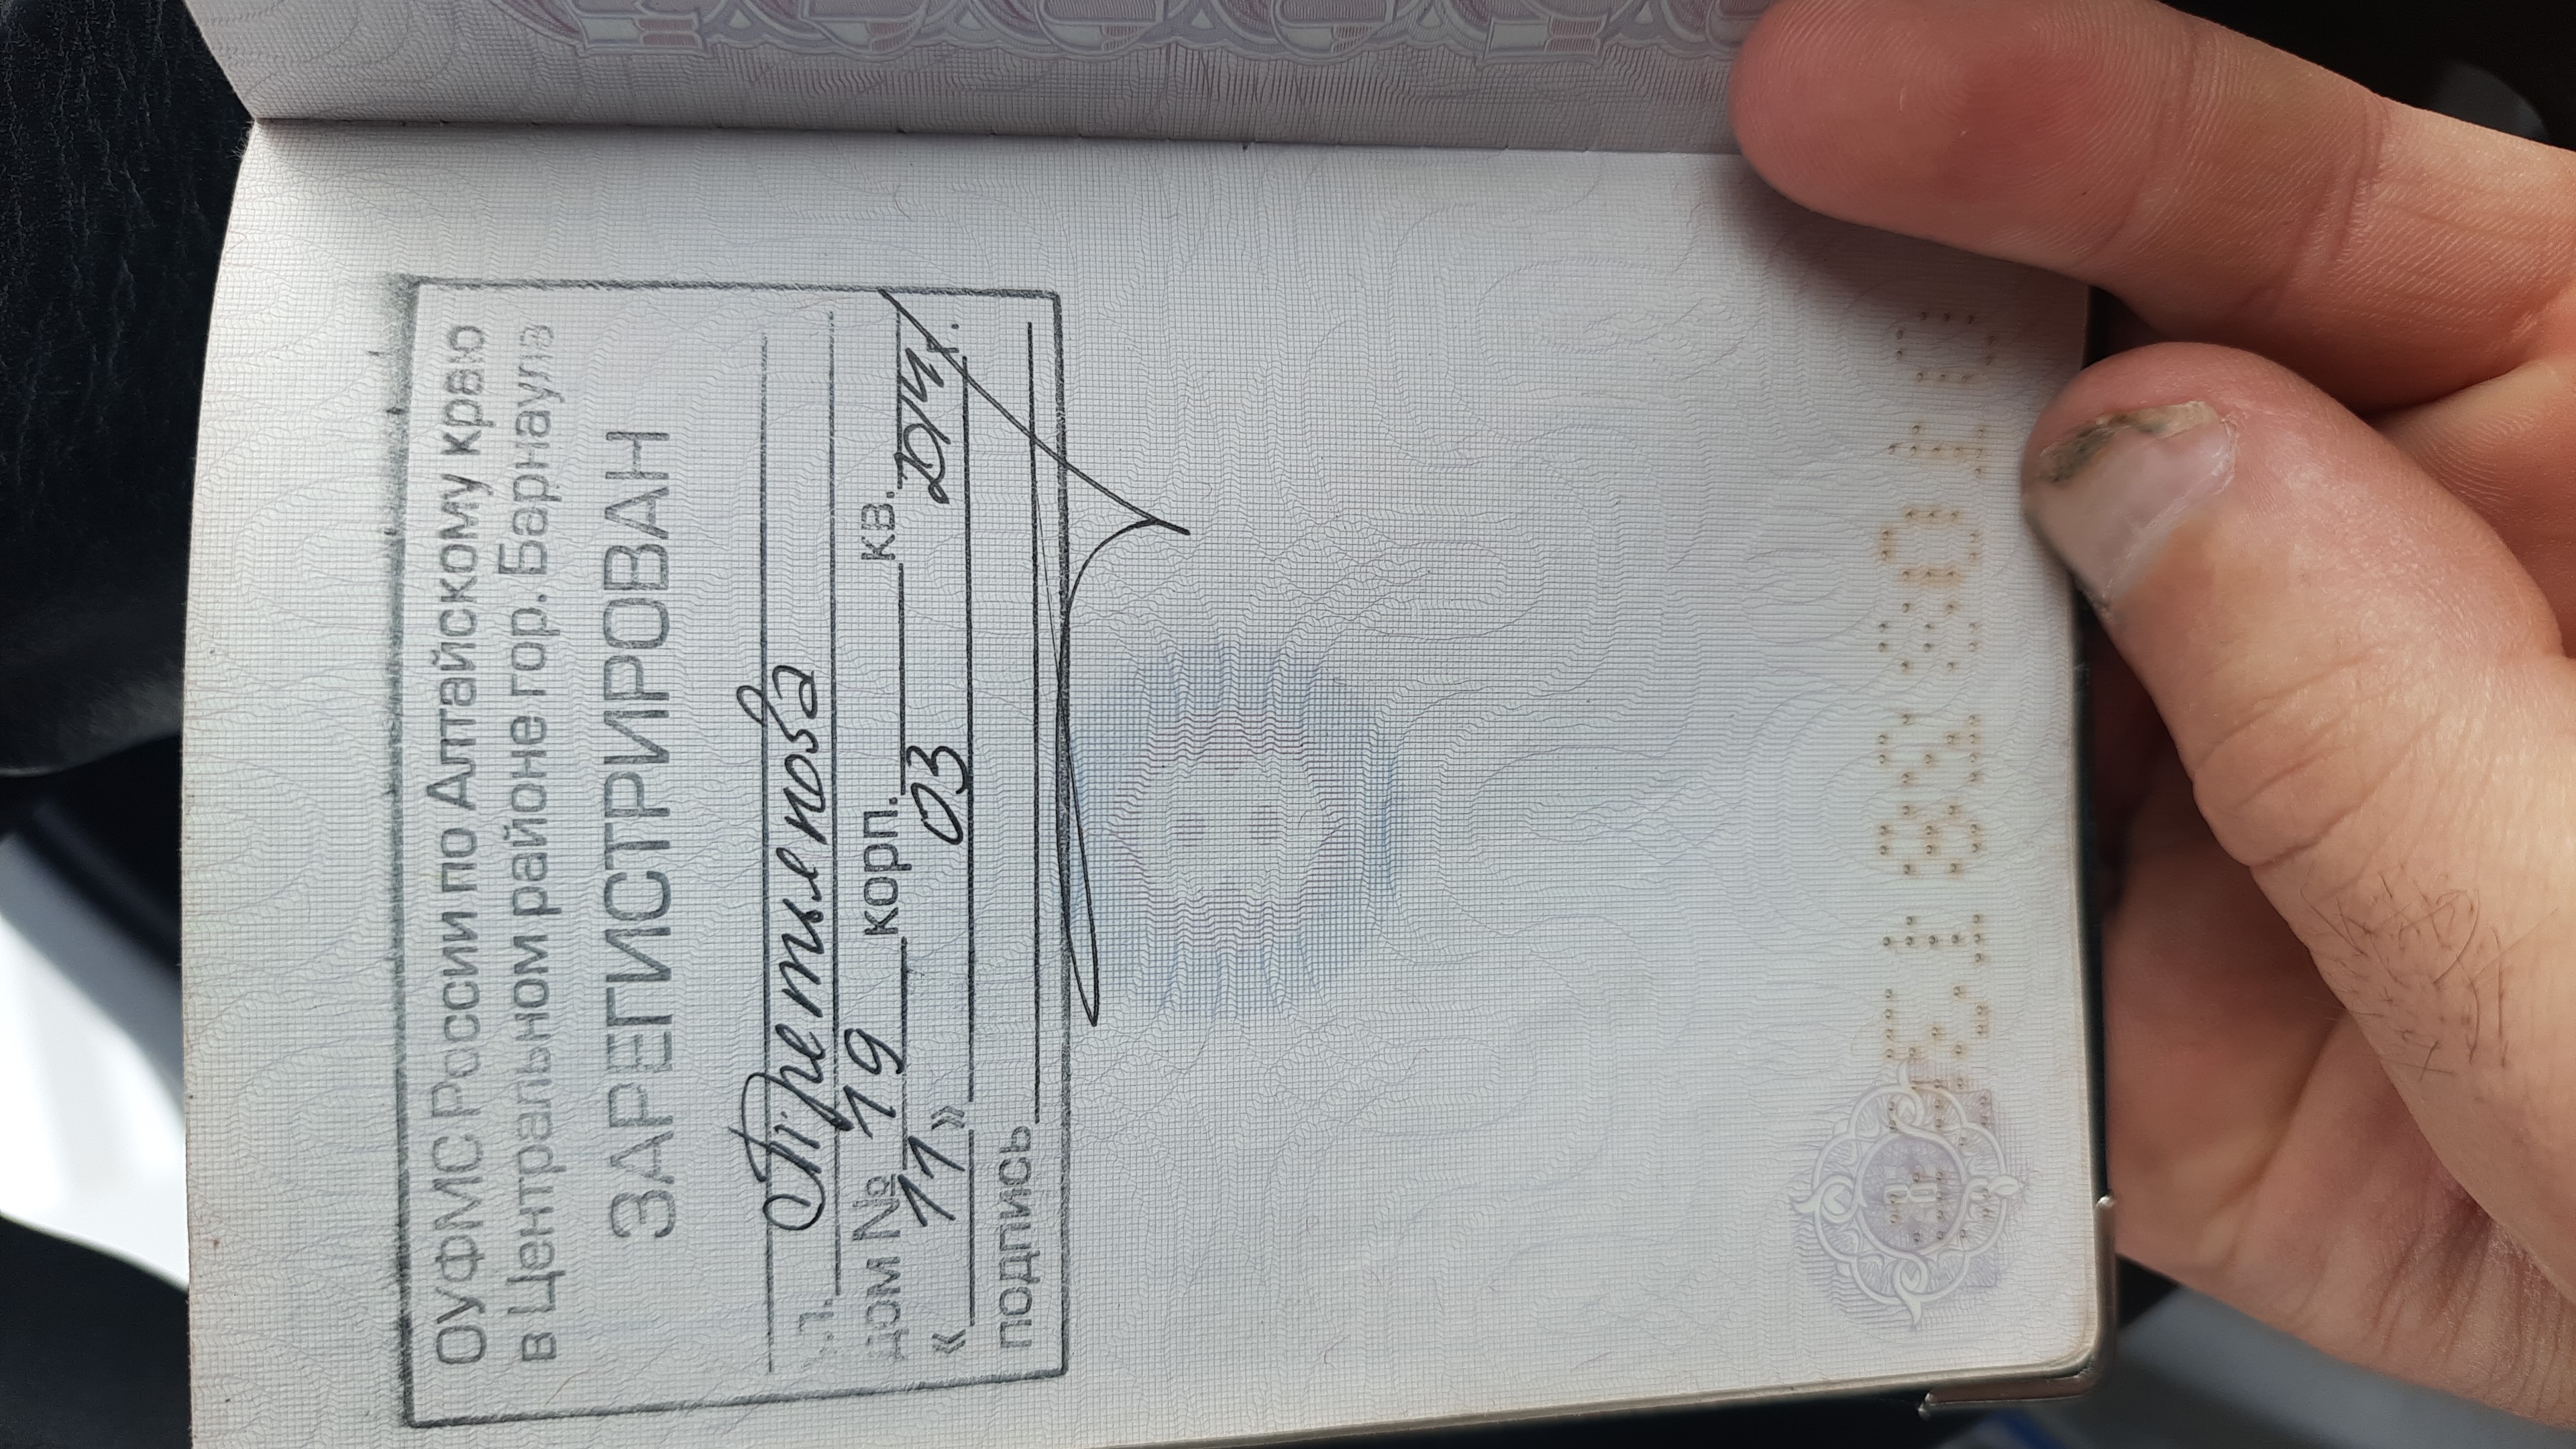 ОУФМС России по Алтайскому краю
в Центральном районе гор. Барнаула
ЗАРЕГИСТРИРОВАН
ул. Третьякова
дом № 19 корп. кв.
« 11 » 03 2014 г.
подпись